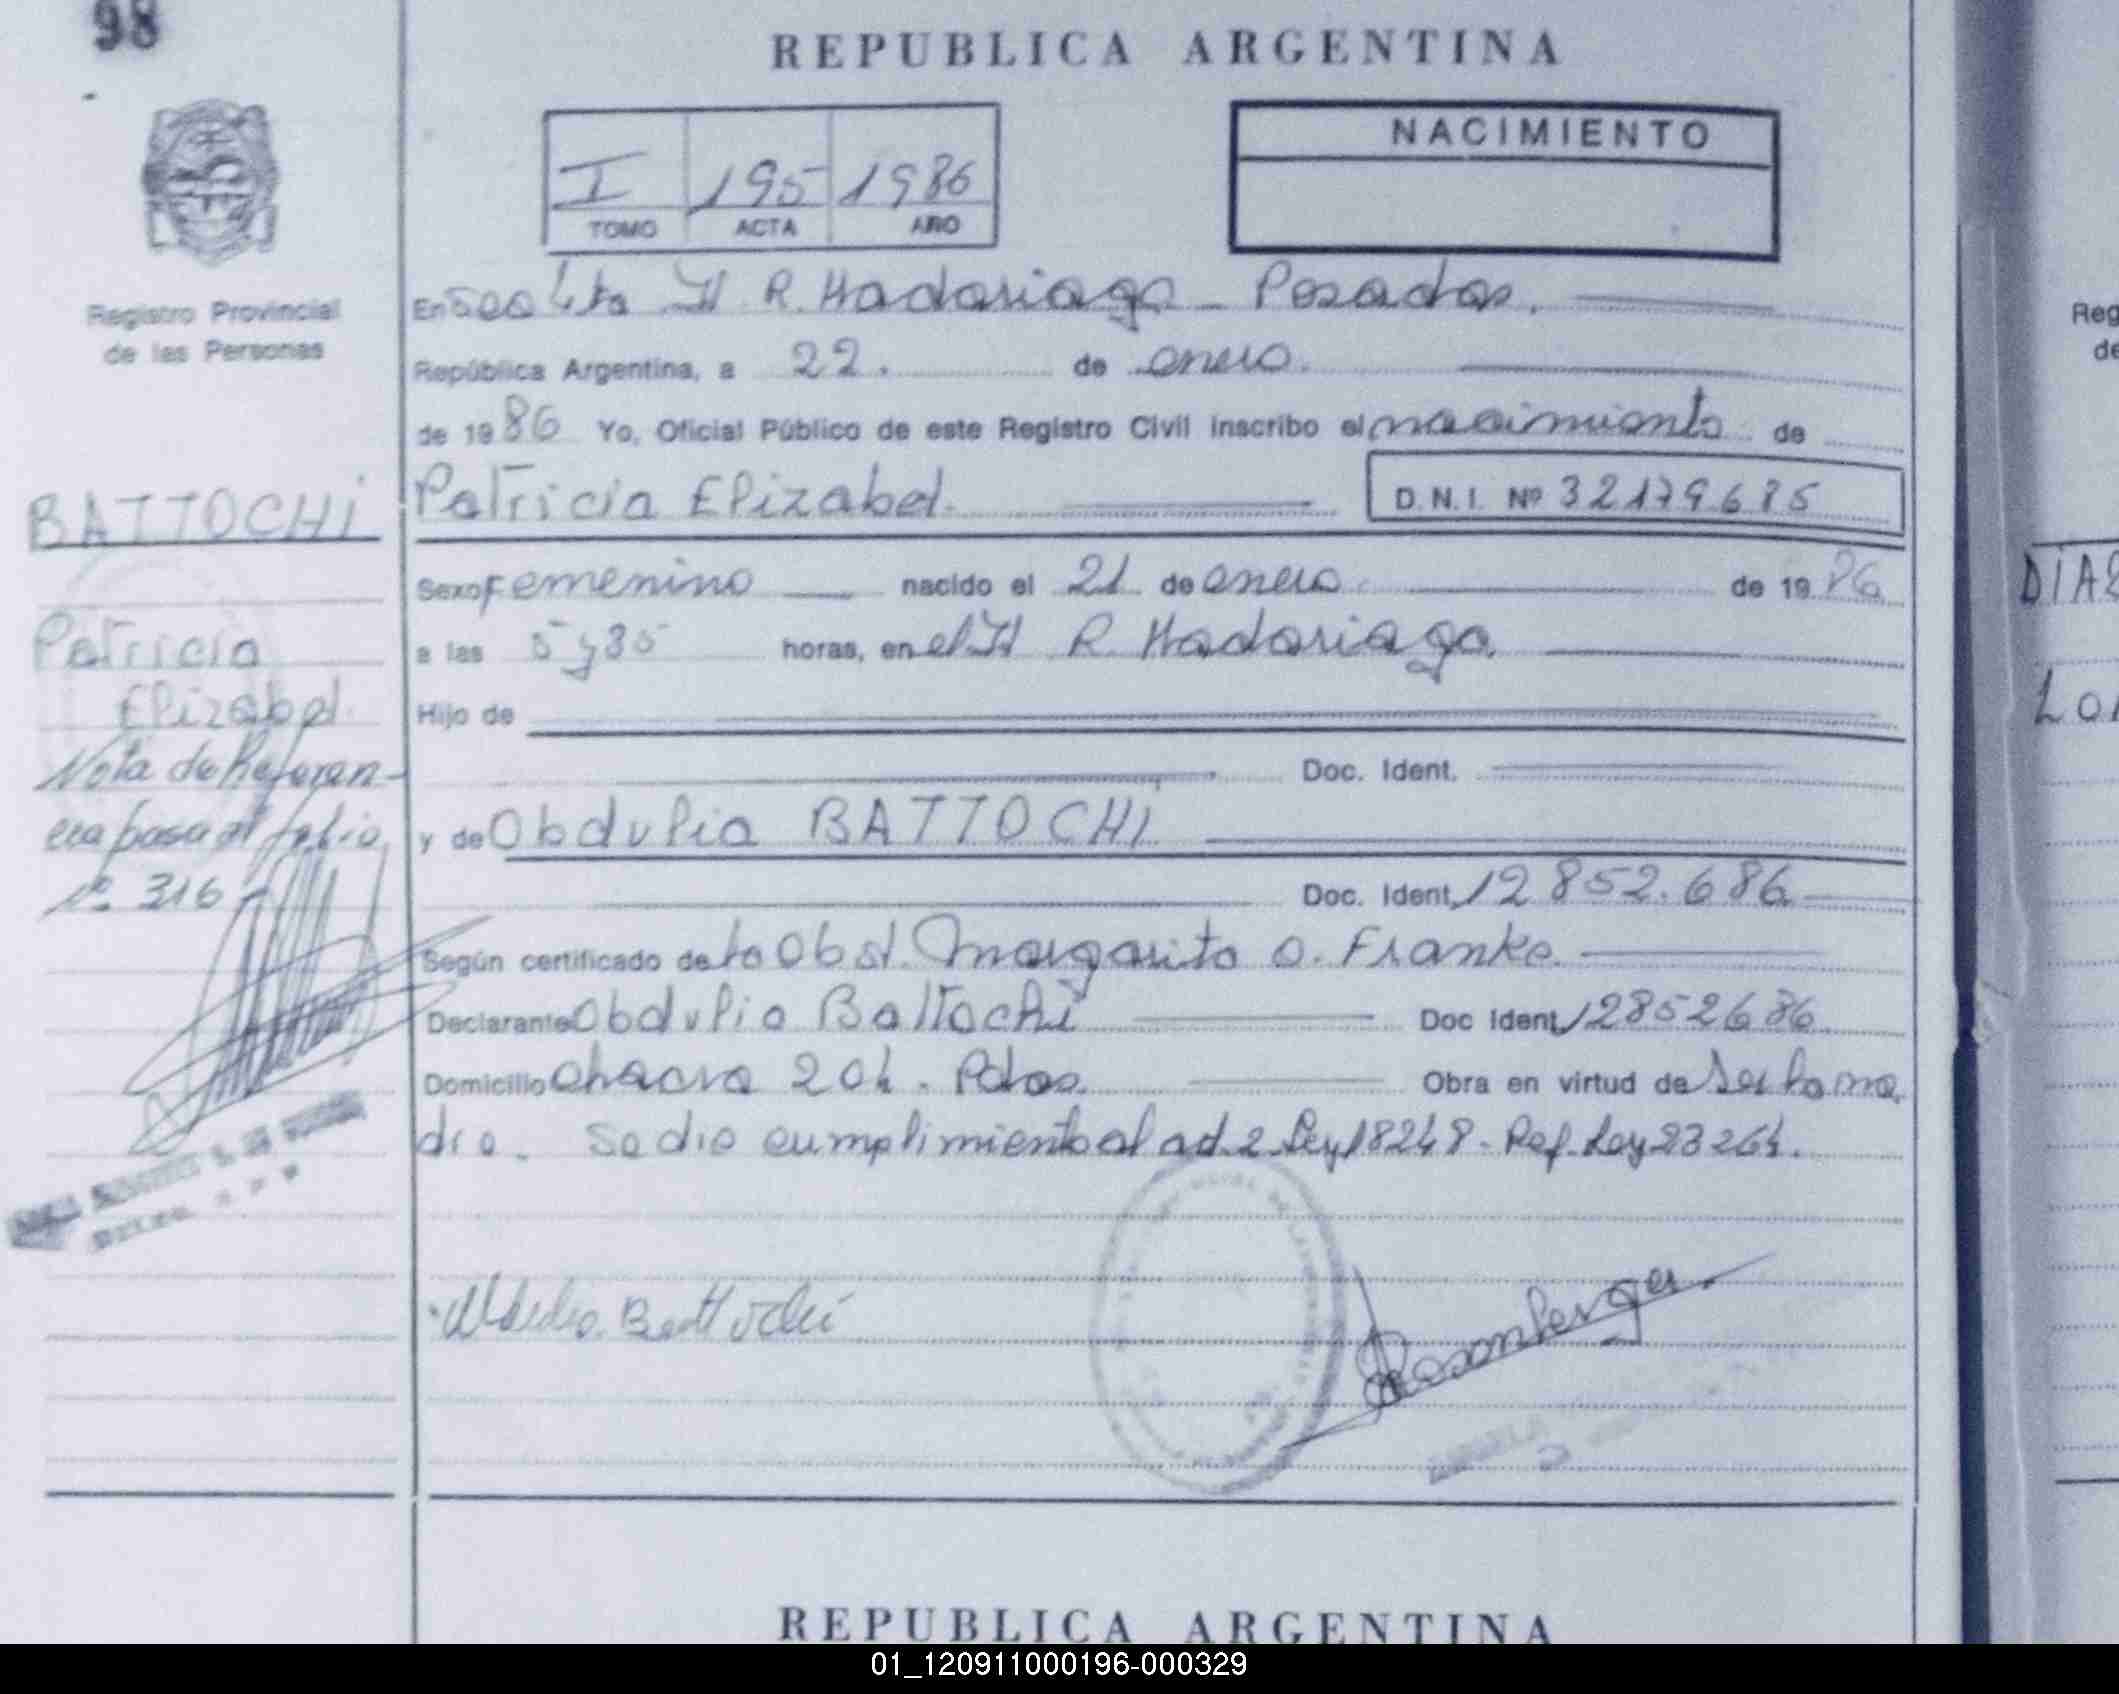 98
REPUBLICA ARGENTINA
I 195 1986
TOMO ACTA AÑO
NACIMIENTO
Registro Provincial
de las Personas
En Secc 4ta H R. Madariaga - Posadas.
República Argentina, a 22. de enero.
de 1986 Yo, Oficial Público de este Registro Civil inscribo el nacimiento de
BATTOCHI
Patricia Elizabet.
D.N.I. Nº 32179685
Sexo femenino nacido el 21 de enero. de 1986
Patricia
Elizabet.
a las 5 y 35 horas, en el H R. Madariaga.
Hijo de
Nota de Referen-
cia pasa al folio
Nº 316
Doc. Ident.
y de Obdulia BATTOCHI
Doc. Ident. 12852.686
Según certificado de la Obst. Margarita O. Franke.
Declarante Obdulia Battochi Doc Ident. 12852686
Domicilio Chacra 204. Pdas. Obra en virtud de ser la ma
dre. Se dio cumplimiento al art. 2 Ley 18248 - Ref. Ley 23264.
Battochi
Rosenberger
REPUBLICA ARGENTINA
Reg
de
DIAS
LO
01_120911000196-000329